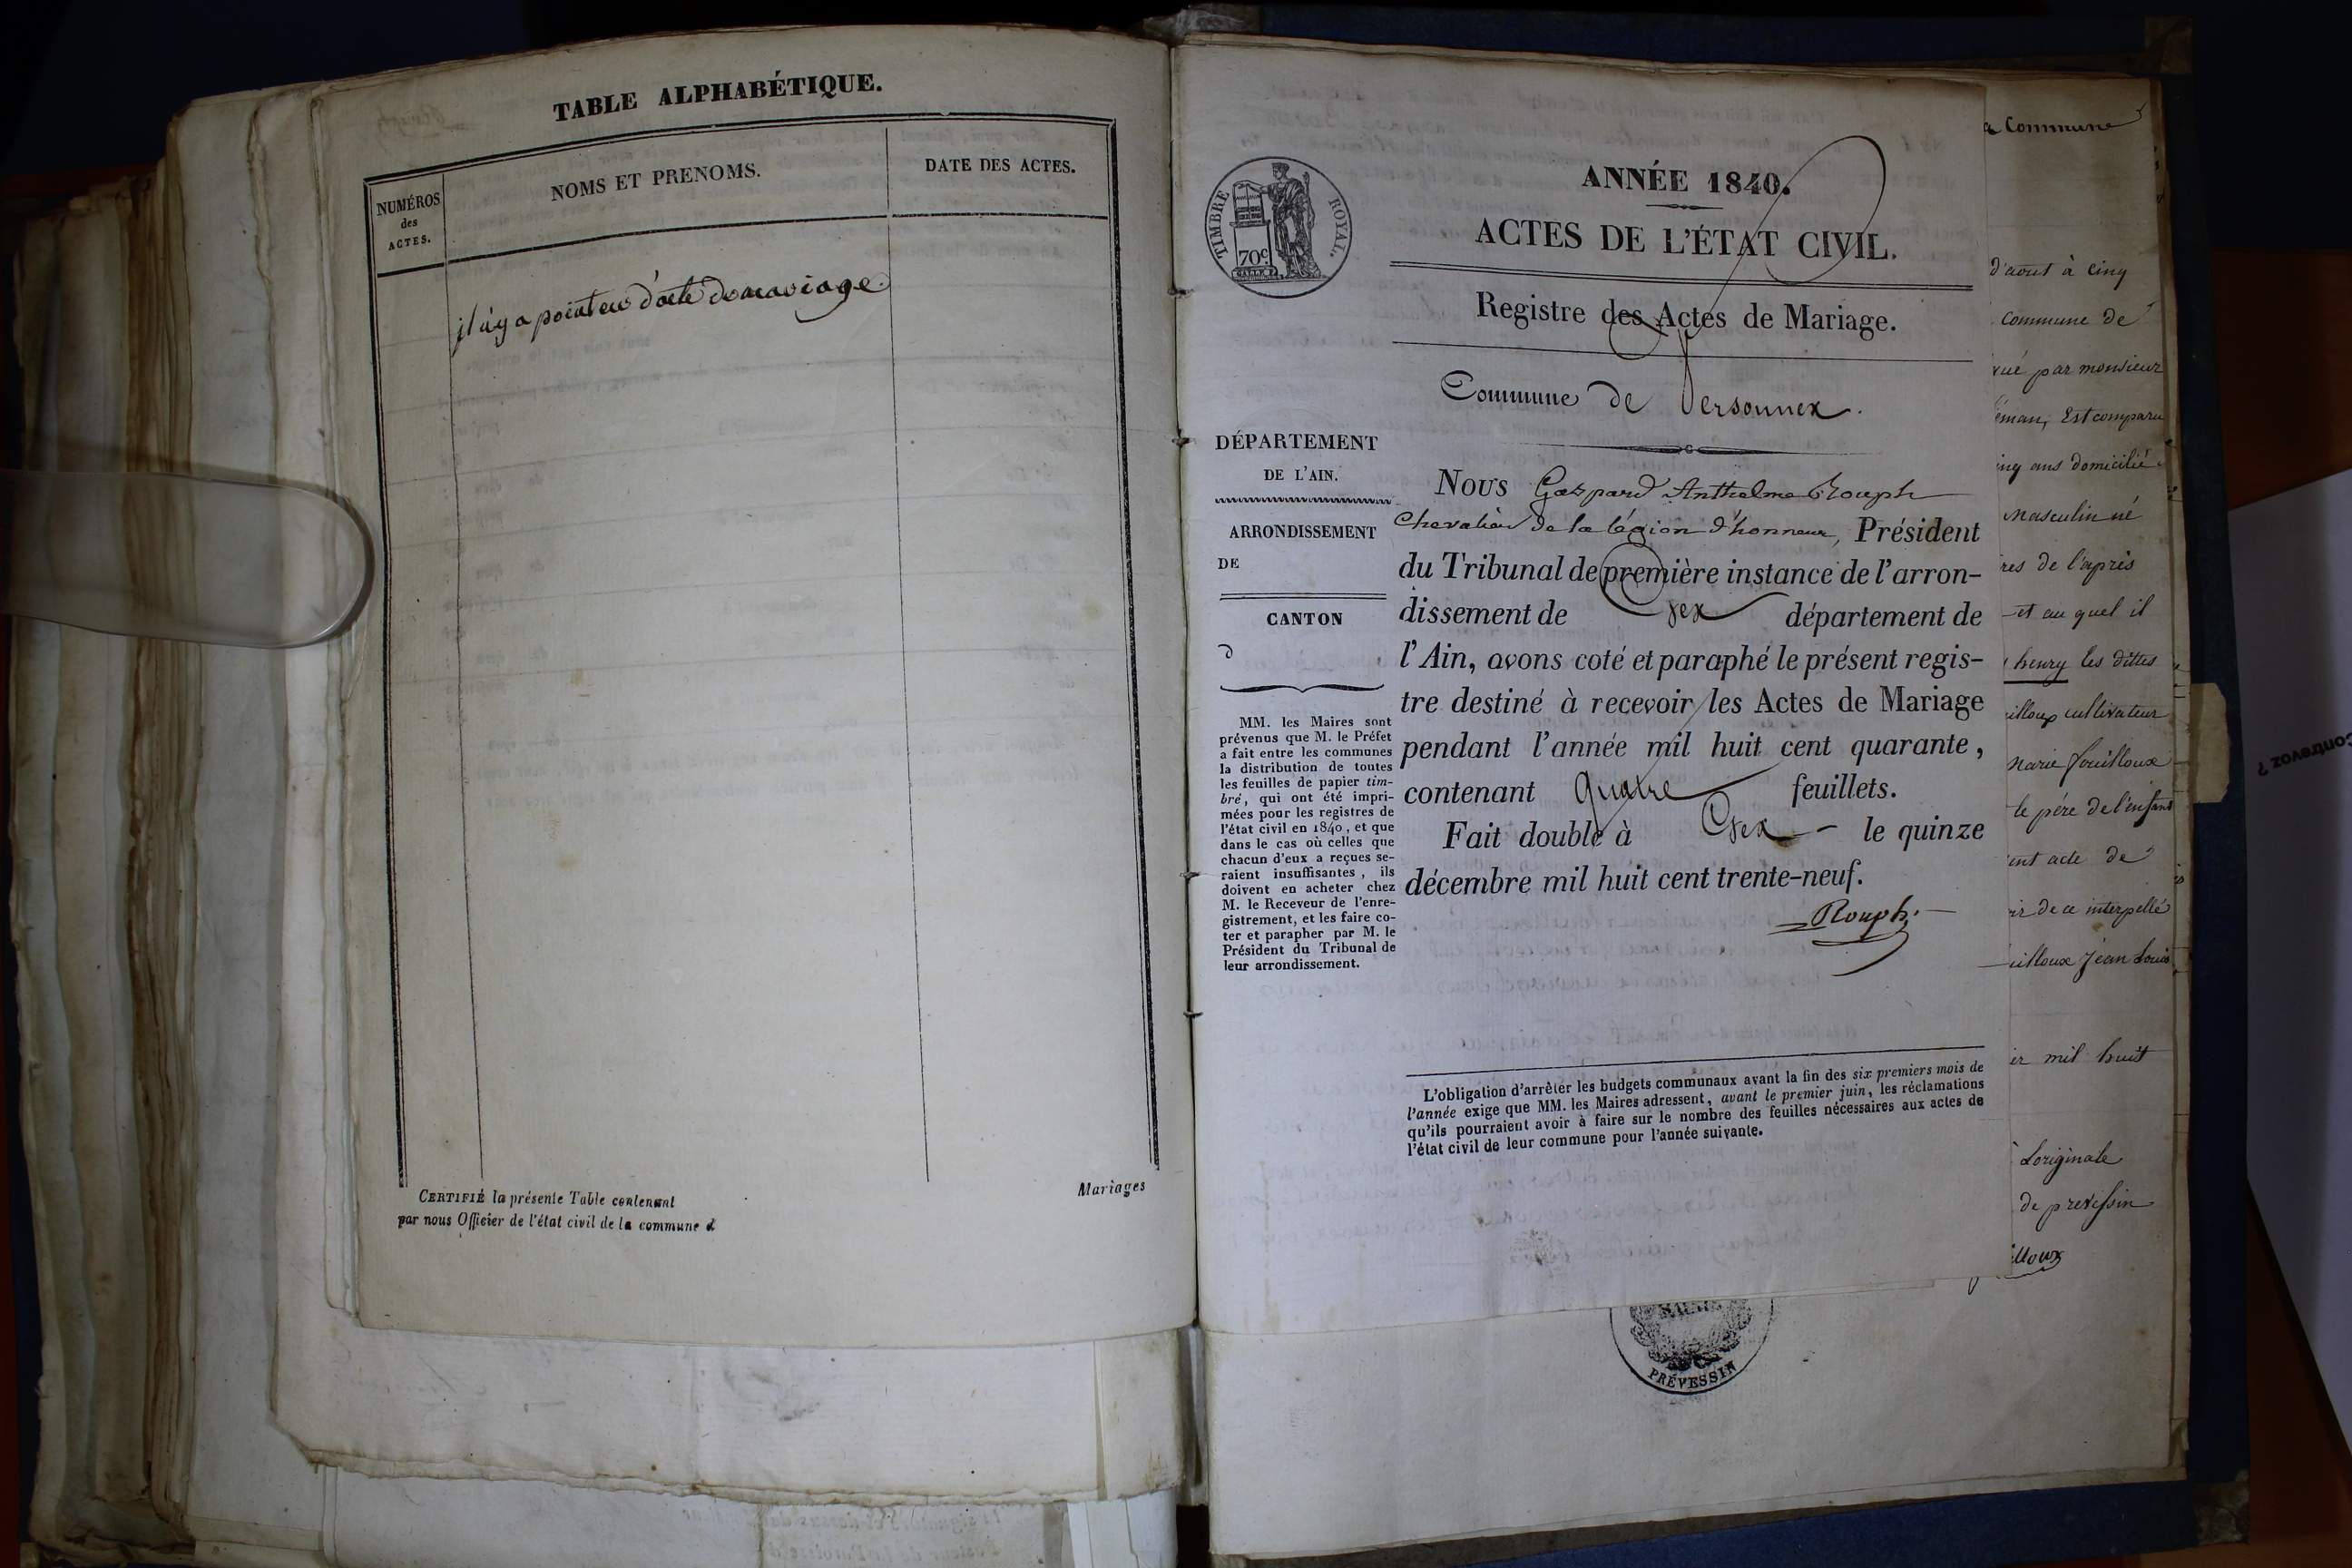 TABLE ALPHABÉTIQUE.
NUMÉROS
des
ACTES.
NOMS ET PRENOMS.
DATE DES ACTES.
il n'y a point eu d'acte de mariage
CERTIFIÉ la présente Table contenant
par nous Officier de l'état civil de la commune d
Mariages
TIMBRE ROYAL.
70c.
ANNÉE 1840.
ACTES DE L'ÉTAT CIVIL.
Registre des Actes de Mariage.
Commune de Versonnex.
DÉPARTEMENT
DE L'AIN.
ARRONDISSEMENT
DE
CANTON
D
MM. les Maires sont
prévenus que M. le Préfet
a fait entre les communes
la distribution de toutes
les feuilles de papier tim-
bré, qui ont été impri-
mées pour les registres de
l'état civil en 1840, et que
dans le cas où celles que
chacun d'eux a reçues se-
raient insuffisantes, ils
doivent en acheter chez
M. le Receveur de l'enre-
gistrement, et les faire co-
ter et parapher par M. le
Président du Tribunal de
leur arrondissement.
Nous Gaspard Anthelme Rouph
Chevalier de la légion d'honneur, Président
du Tribunal de première instance de l'arron-
dissement de Gex département de
l'Ain, avons coté et paraphé le présent regis-
tre destiné à recevoir les Actes de Mariage
pendant l'année mil huit cent quarante,
contenant quatre feuillets.
Fait double à Gex le quinze
décembre mil huit cent trente-neuf.
Rouph
L'obligation d'arrêter les budgets communaux avant la fin des six premiers mois de
l'année exige que MM. les Maires adressent, avant le premier juin, les réclamations
qu'ils pourraient avoir à faire sur le nombre des feuilles nécessaires aux actes de
l'état civil de leur commune pour l'année suivante.
a Commune
d'aout à cinq
commune de
par monsieur
Est comparu
ans domicilié
masculin né
res de l'après
et au quel il
henry les dittes
cultivateur
marie fouilloux
le pére de l'enfant
acte de
de ce interpellé
uilloux Jean Louis
mil huit
Loriginale
de prevessin
lloux
MAIRIE
PRÉVESSIN
Contrevoz ?